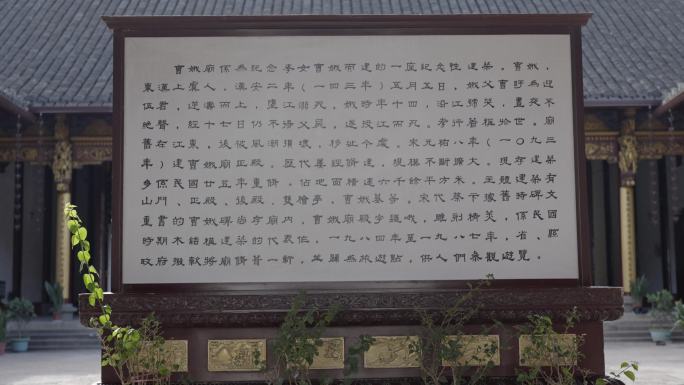 曹娥廟係為紀念孝女曹娥而建的一座紀念性建築。曹娥,
東漢上虞人,漢安二年(一四三年)五月五日,娥父曹盱為迎
伍君,逆濤而上,墮江溺死。娥時年十四,沿江號哭,晝夜不
絕聲,經十七日仍不得父屍,遂投江而死。孝行世,廟
舊在江東,後被風潮損壞,移址今處。宋元祐八年(一〇九三
年)建曹娥正殿。歷代屢經修建,規模不斷擴大。現存建築
係民國廿五年重修,佔地面積達六千餘平方米。主建築有
山門、正殿、後殿、雙檜亭、曹娥墓等。宋代蔡卞據舊碑文
重書的曹娥碑尚存廟內,曹娥廟殿宇巍峨,雕刻精美,係民國
時期木結構建築的代表作。一九八四年至一九八七年,省、縣
政府撥款將廟修葺一新,並闢為旅遊點,供人們參觀遊覽。